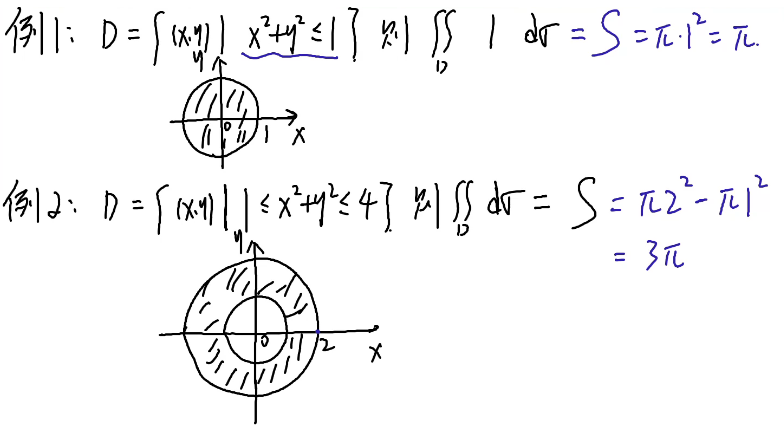 例1: D = {(x,y) | x²+y² ≤ 1} 则 ∬_D 1 dσ = S = π·1² = π.
y
0 1 x
例2: D = {(x,y) | 1 ≤ x²+y² ≤ 4} 则 ∬_D dσ = S = π2² - π1²
= 3π
y
0 1 2 x